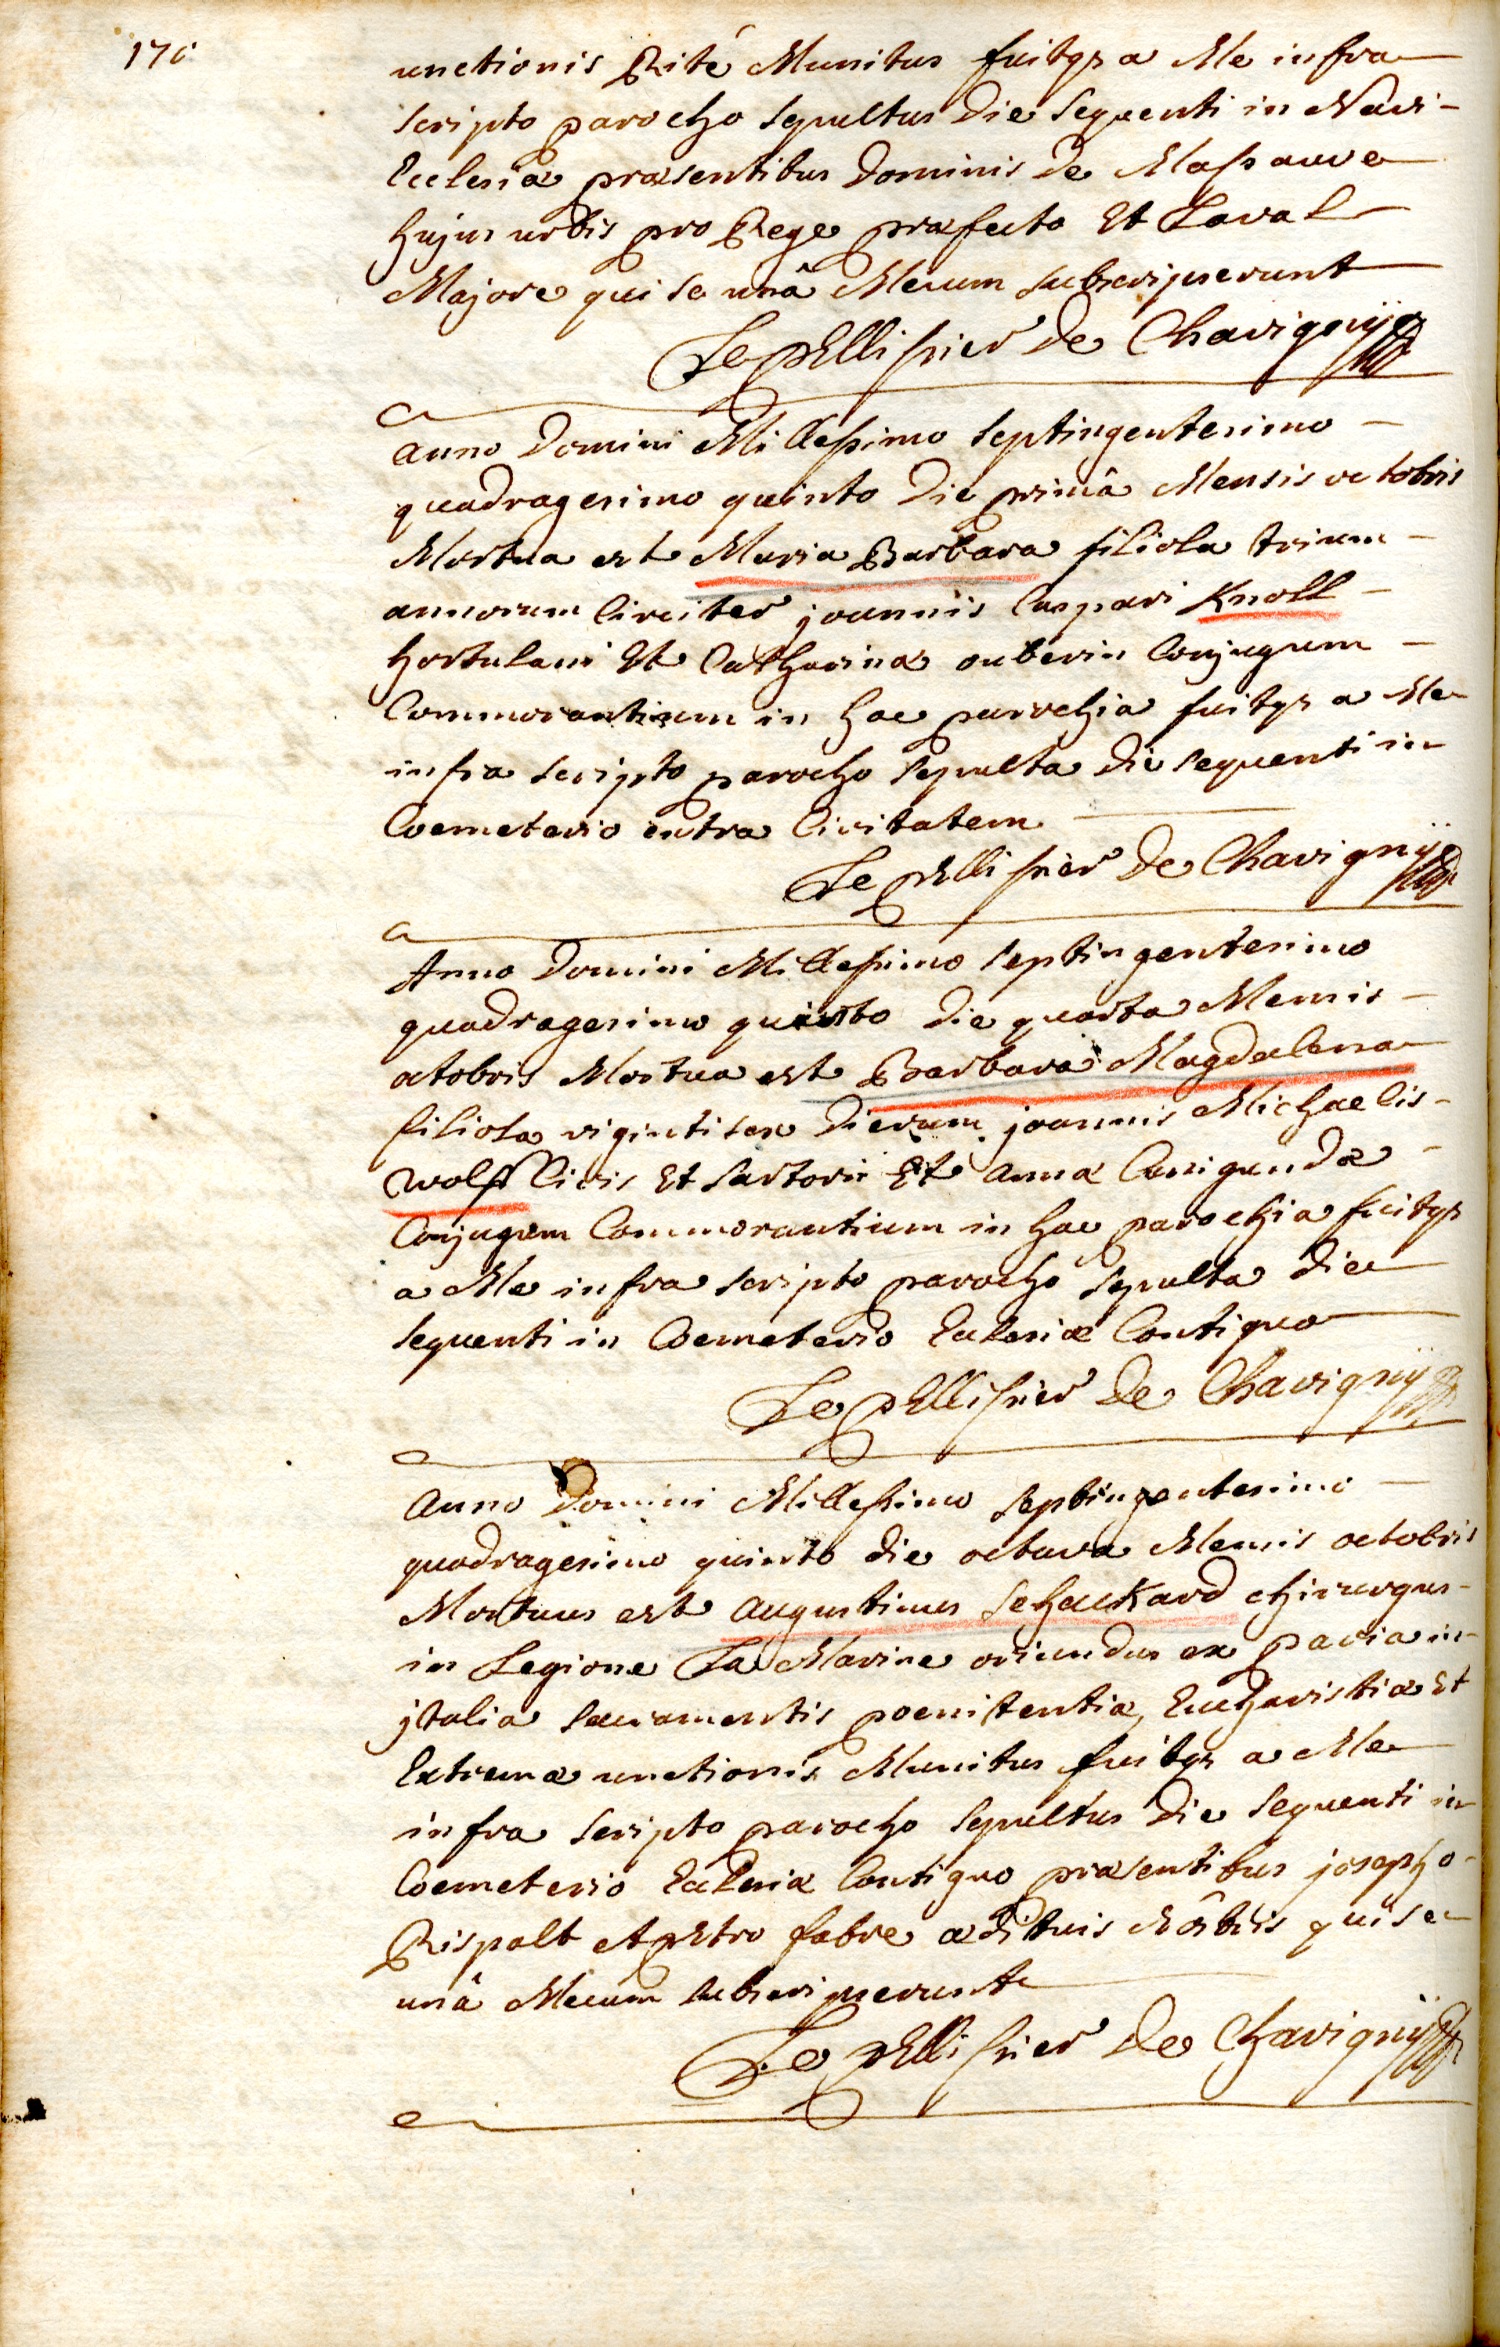 170
unctionis Rité Munitus fuitqz a Me infra
scripto parocho sepultus die sequenti in Navi
Ecclesiæ præsentibus Dominis de Massauve
hujus urbis pro Rege præfecto Et Laval
Majore qui se unâ Mecum subscripserunt
Le pEllissier de Chavignÿ
anno Domini Millessimo septingentesimo
quadragesimo quinto die primâ Mensis octobris
Mortua est Maria Barbara filiola trium
annorum Circiter joannis Caspari Knoll
hortulani Et Catharinæ huberin Conjugum
Commorantium in hac parochia fuitqz a Me
infra scripto parocho sepulta die sequenti in
Coemeterio extra Civitatem
Le pEllissier de Chavignÿ
Anno Domini Millessimo septingentesimo
quadragesimo quinto die quarta Mensis
octobris Mortua est Barbara Magdalena
filiola viginti sex dierum joannis Michaelis
Wolff Civis Et sartoris Et annæ Cunigundæ
Conjugum Commorantium in hac parochia fuitqz
a Me infra scripto parocho sepulta die
sequenti in Coemeterio Ecclesiæ Contiguo
Le pEllissier de Chavignÿ
anno Domini Millessimo septingentesimo
quadragesimo quinto die octava Mensis octobris
Mortuus est augustinus Schackard chirurgus
in Legione La Marine oriundus ex pavia in
jtalia sacramentis poenitentiæ, Eucharistiæ Et
Extremæ unctionis Munitus fuitqz a Me
infra scripto parocho sepultus die sequenti in
Coemeterio Ecclesiæ Contiguo præsentibus josepho
Rispalt et pEtro fabre ædituis nôbis qui se
unâ Mecum subscripserunt
Le pEllissier de Chavignÿ